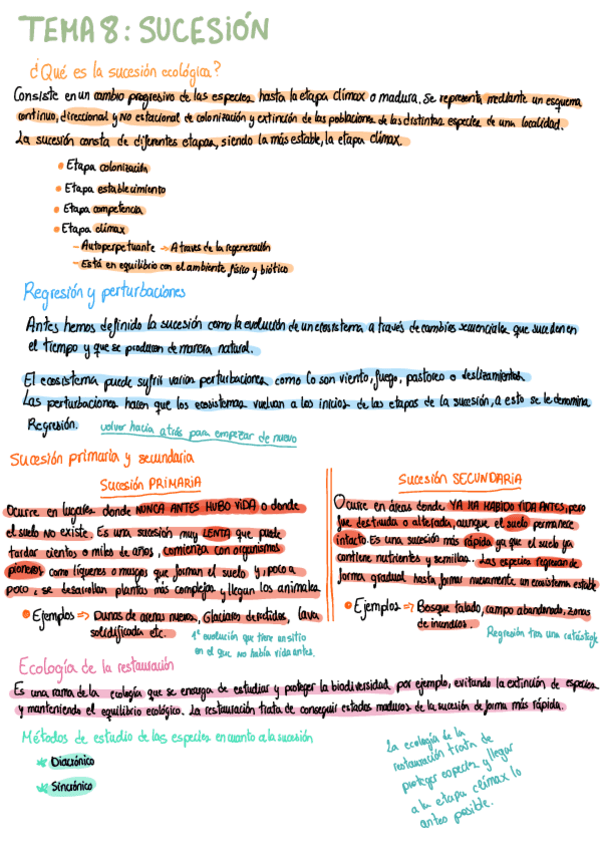 TEMA 8: SUCESIÓN
¿Qué es la sucesión ecológica?
Consiste en un cambio progresivo de las especies hasta la etapa clímax o madura. Se representa mediante un esquema
continuo, direccional y NO estacional de colonización y extinción de las poblaciones de las distintas especies de una localidad.
La sucesión consta de diferentes etapas, siendo la más estable, la etapa clímax.
• Etapa colonización
• Etapa establecimiento
• Etapa competencia
• Etapa clímax
- Autoperpetuante → A traves de la regeneración
- Está en equilibrio con el ambiente físico y biótico
Regresión y perturbaciones
Antes hemos definido la sucesión como la evolución de un ecosistema a través de cambios secuenciales que suceden en
el tiempo y que se producen de manera natural.
El ecosistema puede sufrir varias perturbaciones como lo son viento, fuego, pastoreo o deslizamientos
Las perturbaciones hacen que los ecosistemas vuelvan a los inicios de las etapas de la sucesión, a esto se le denomina
Regresión. volver hacia atrás para empezar de nuevo
Sucesión primaria y secundaria
Sucesión PRIMARIA
Ocurre en lugares donde NUNCA ANTES HUBO VIDA o donde
el suelo NO existe. Es una sucesión muy LENTA que puede
tardar cientos o miles de años, comienza con organismos
pioneros como líqueres o musgos que forman el suelo y, poco a
poco, se desarrollan plantas más complejas y llegan los animales
• Ejemplos ⇒ Dunas de arenas nuevas, Glaciares derretidos, lava
solidificada etc.
1ª evolución que tiene un sitio
en el que no había vida antes.
Sucesión SECUNDARIA
Ocurre en áreas donde YA HA HABIDO VIDA ANTES, pero
fue destruida o alterada, aunque el suelo permanece
intacto. Es una sucesión más rápida ya que el suelo ya
contiene nutrientes y semillas. Las especies regresan de
forma gradual hasta formar nuevamente un ecosistema estable
• Ejemplos ⇒ Bosque talado, campo abandonado, zonas
de incendios.
Regresión tras una catástrofe
Ecología de la restauración
Es una rama de la ecología que se encarga de estudiar y proteger la biodiversidad, por ejemplo, evitando la extinción de especies
y manteniendo el equilibrio ecológico. La restauración trata de conseguir estados maduros de la sucesión de forma más rápida.
Métodos de estudio de las especies en cuanto a la sucesión
Diacrónico
Sincrónico
La ecología de la
restauración trata de
proteger especies y llegar
a la etapa clímax lo
antes posible.